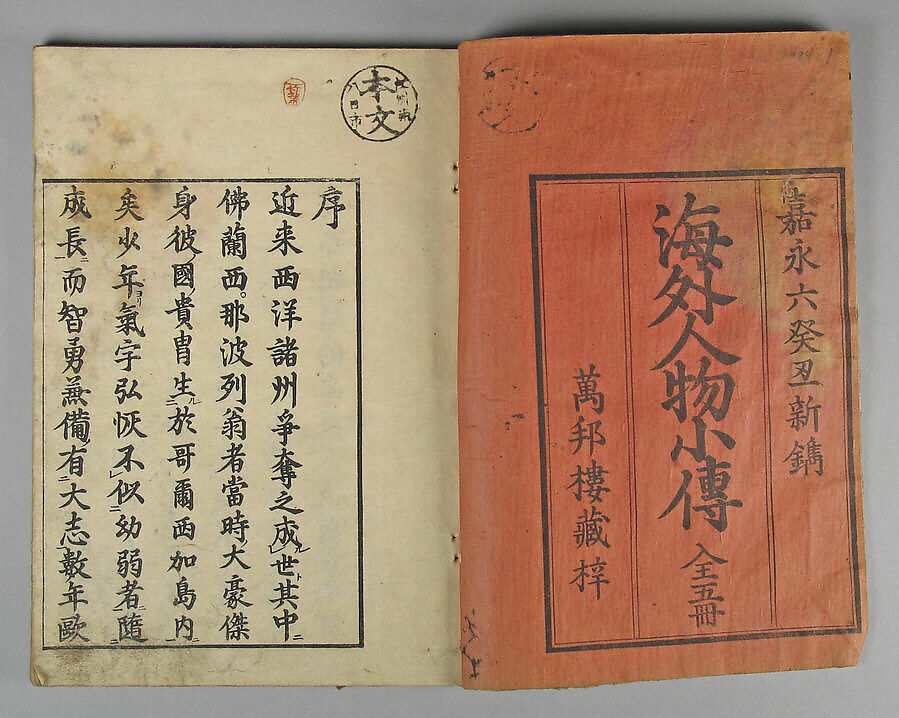 嘉永六癸丑新鐫
海外人物小傳 全五冊
萬邦樓藏梓
本文
八日市
序
近来西洋諸州爭奪之成世其中
佛蘭西那波列翁者當時大豪傑
身彼國貴胄生於哥爾西加島内
矣少年氣宇弘恢不似幼弱者隨
成長而智勇兼備有大志數年歐